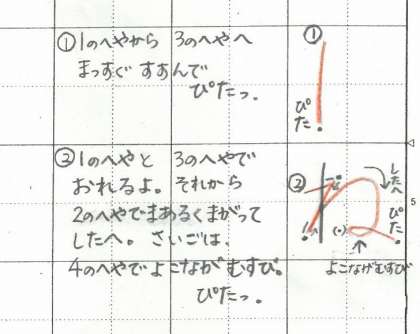 ①1のへやから 3のへやへ
まっすぐ すすんで
ぴたっ。
①
ぴた
②1のへやと 3のへやで
おれるよ。それから
2のへやでまあるくまがって
したへ。さいごは、
4のへやでよこながむすび。
ぴたっ。
②
したへ
ぴた
よこながむすび
5